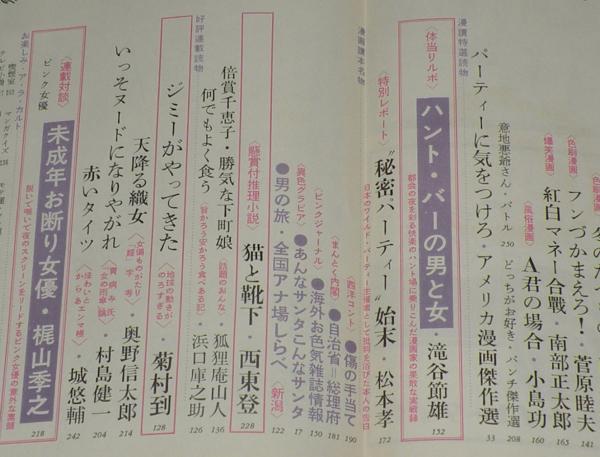 〈色刷漫画〉フンづかまえろ!・菅原睦夫 141
〈爆笑漫画〉紅白マネー合戦・南部正太郎 165
〈風俗漫画〉A君の場合・小島功 160
意地悪爺さん・バトル 250
どっちがお好き・パンチ傑作選 208
パーティーに気をつけろ・アメリカ漫画傑作選 33
漫讀特選読物
〈体当りルポ〉ハント・バーの男と女・滝谷節雄 152
都会の夜を彩る快楽のハント場に乗りこんだ漫画家の果敢な実戦録
〈特別レポート〉"秘密パーティー"始末・松本孝 172
日本のワイルド・パーティー主催者として批判を浴びた本人の告白
漫画讀本名物
〈西洋コント〉●傷の手当て 190
〈まんとく内閣〉●自治省=総理府 181
〈ピンクジャーナル〉●海外お色気雑誌情報
〈異色グラビア〉●あんなサンタこんなサンタ
●男の旅・全国アナ場しらべ〈新潟〉
〈懸賞付推理小説〉猫と靴下・西東登 228
好評連載読物
倍賞千恵子・勝気な下町娘〈話題のみんな〉・狐狸庵山人 136
何でもよく食う〈旨かろう安かろう食べある記〉・浜口庫之助 126
ジミーがやってきた〈地球の動きがのろすぎる〉・菊村到 128
天降る織女・奥野信太郎 214
いっそヌードになりやがれ・村島健一 204
赤いタイツ・城悠輔 242
〈連載対談〉ピンク女優 未成年お断り女優・梶山季之 218
脱いで喘いで夜のスクリーンをリードするピンク女優の意外な素顔
お楽しみ・ア・ラ・カルト
マンガクイズ